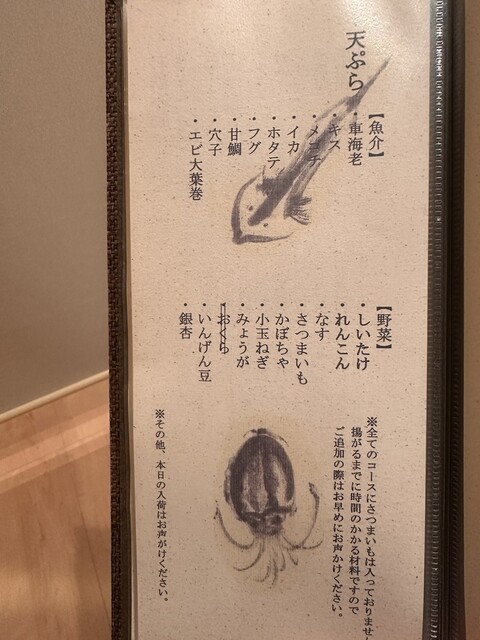 天ぷら
【魚介】
・車海老
・キス
・メゴチ
・イカ
・ホタテ
・フグ
・甘鯛
・穴子
・エビ大葉巻
【野菜】
・しいたけ
・れんこん
・なす
・さつまいも
・かぼちゃ
・小玉ねぎ
・みょうが
・おくら
・いんげん豆
・銀杏
※全てのコースにさつまいもは入っておりません
揚がるまでに時間のかかる材料ですので
ご追加の際はお早めにお声かけください。
※その他、本日の入荷はお声がけください。